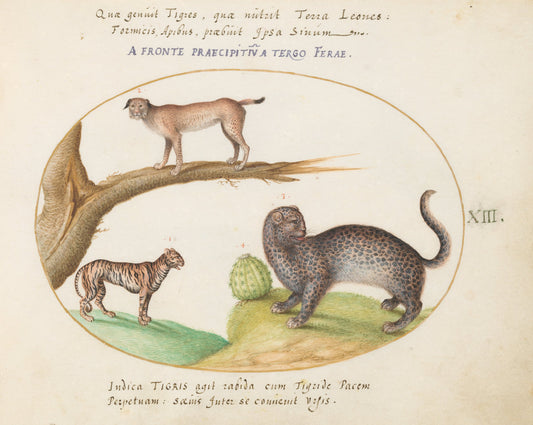 Quæ genuit Tigres, quæ nutrit Terra Leones:
Formicis, Apibus, præbuit Ipsa Sinum
A FRONTE PRAECIPITIŨ A TERGO FERAE.
2
3
1
4
XIII.
Indica TIGRIS agit rabida cum Tigride Pacem
Perpetuam: sæuis Inter se conuenit Vrsis.